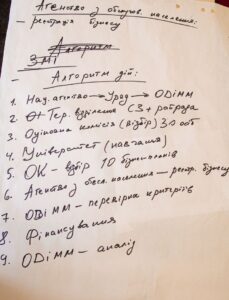 Агенство з обслугов. населення:
– реєстрація бізнесу
Алгоритм
ЗМІ
– Алгоритм дій:
1. Нац. агентство → Уряд → ОДіММ
2. Тер. відділення СЗ + 
3. Оціночна комісія (відбір) 30 осіб
4. Університет (навчання)
5. ОК – відбір 10 бізн-планів
6. Агенство з обсл. населення – реєстр. бізнесу
7. ОДіММ – перевірка критеріїв
8. Фінансування
9. ОДіММ – аналіз